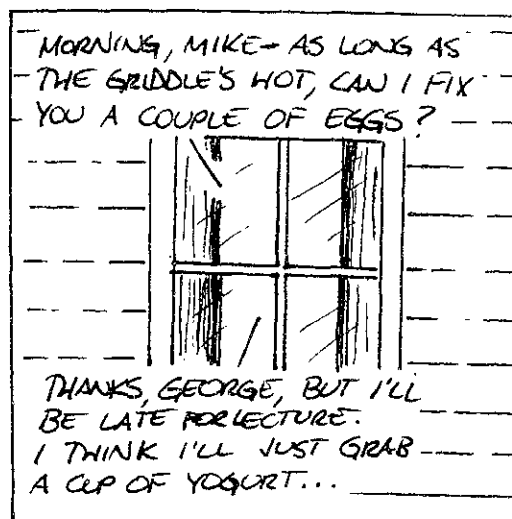 MORNING, MIKE- AS LONG AS
THE GRIDDLE'S HOT, CAN I FIX
YOU A COUPLE OF EGGS?
THANKS, GEORGE, BUT I'LL
BE LATE FOR LECTURE.
I THINK I'LL JUST GRAB
A CUP OF YOGURT...